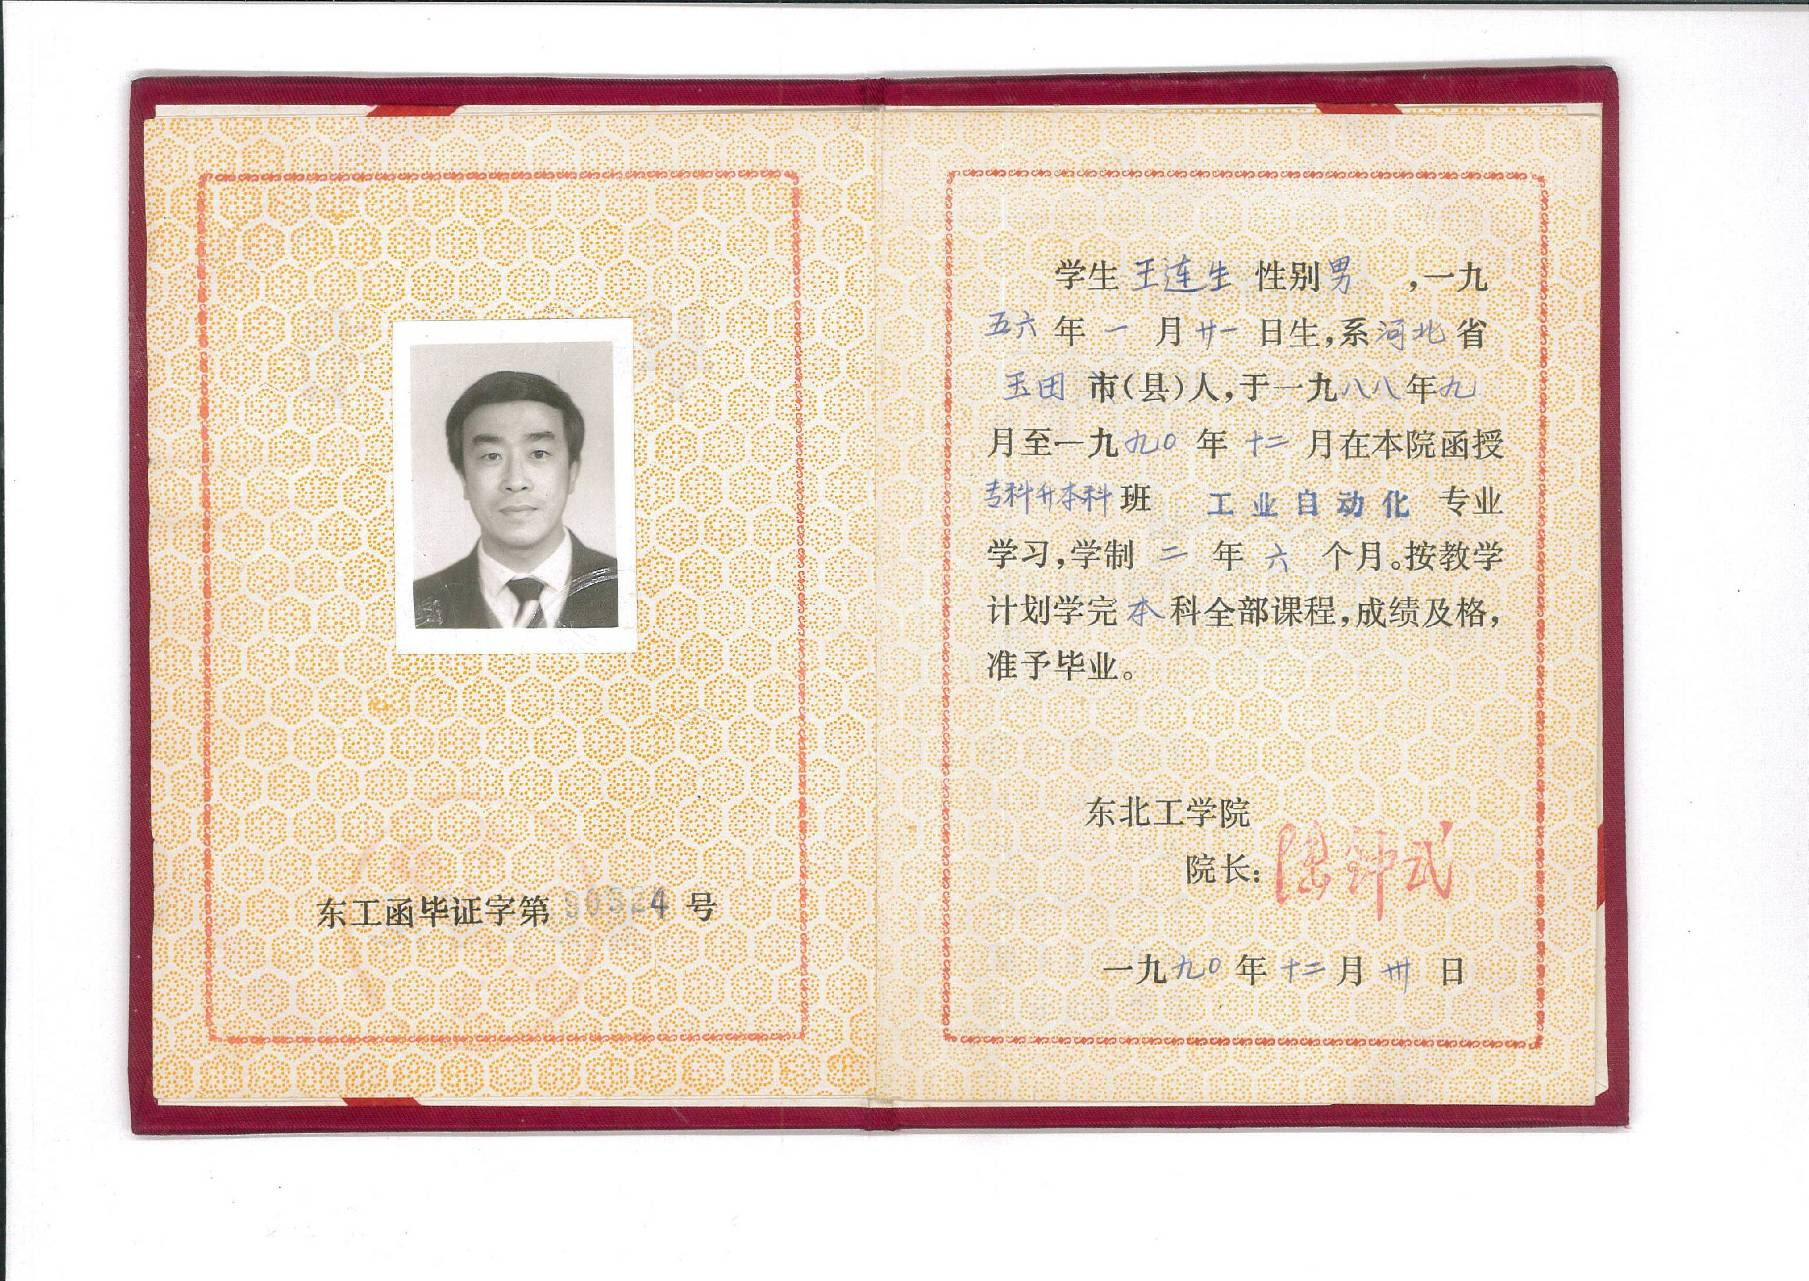 东工函毕证字第 90524 号
学生 王连生 性别 男 ，一九
五六 年 一 月 廿一 日生，系 河北 省
玉田 市（县）人，于一九八八年九
月至一九九〇年 十二 月在本院函授
专科升本科 班 工业自动化 专业
学习，学制 二 年 六 个月。按教学
计划学完 本 科全部课程，成绩及格，
准予毕业。
东北工学院
院长：陆钟武
一九九〇年 十二 月 卅 日